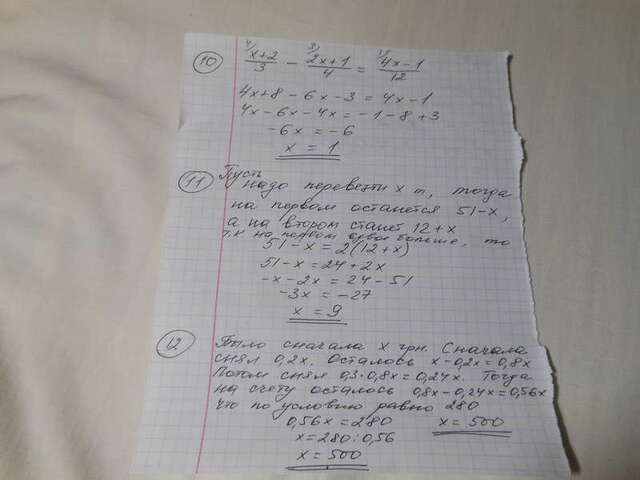 10
4/ x+2 / 3 - 3/ 2x+1 / 4 = 1/ 4x-1 / 12
4x+8 - 6x - 3 = 4x - 1
4x - 6x - 4x = -1 - 8 + 3
-6x = -6
x = 1
11 Пусть
надо перевезти x т, тогда
на первом останется 51-x,
а на втором станет 12+x
т.к на первом вдвое больше, то
51-x = 2(12+x)
51-x = 24+2x
-x-2x = 24-51
-3x = -27
x = 9
12 Было сначала x грн. Сначала
снял 0,2x. Осталось x-0,2x=0,8x
Потом снял 0,3·0,8x=0,24x. Тогда
на счету осталось 0,8x-0,24x=0,56x
что по условию равно 280
0,56x = 280 x = 500
x = 280:0,56
x = 500